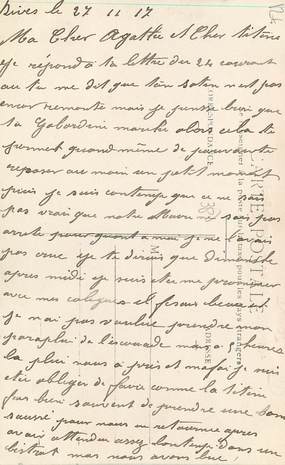 Rives le 27 11 17
Ma Cher Agathe et Cher titine
je répond a ta lettre du 24 courant
ou tu me dit que ton n'est pas
encor remonté mais je pense bien que
ta marche alors cela te
permet quand même de pouvoir te
reposer au moin un petit moment
je suis contente que ce ne sois
pas vrai que notre sois pas
arreté pour quant a moi je ne l'avais
pas crue je te dirais que dimanche
apres midi je suis etée me promener
avec mes colegues il fesais beau et
je n'ai pas voulue prendre mon
parapluie de l'escouade mais a 5 heures
la pluie nous a pris et ma foi je suis
etée obliger de faire comme la titine
fas bien souvent de prendre une bonne
saussé pour nous en retourner apres
avoir attendu assez lontemps dans un
bistrot mais nous avons bue
CARTE POSTALE
CORRESPONDANCE
ADRESSE